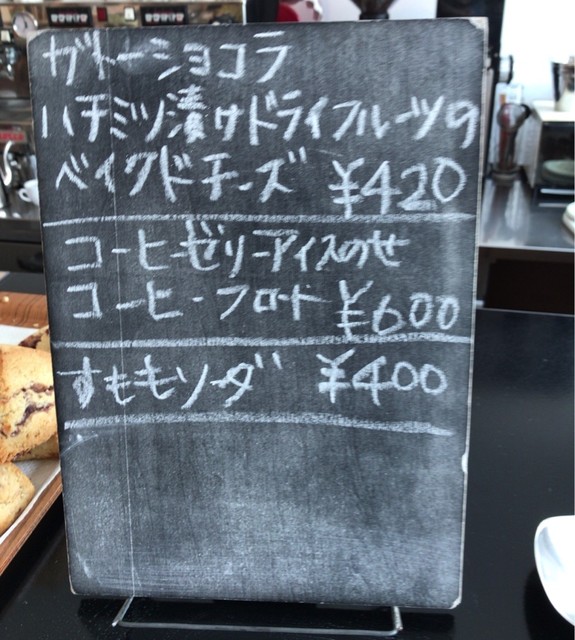 ガトーショコラ
ハチミツ漬けドライフルーツの
ベイクドチーズ ¥420
コーヒーゼリーアイスのせ
コーヒーフロート ¥600
すももソーダ ¥400